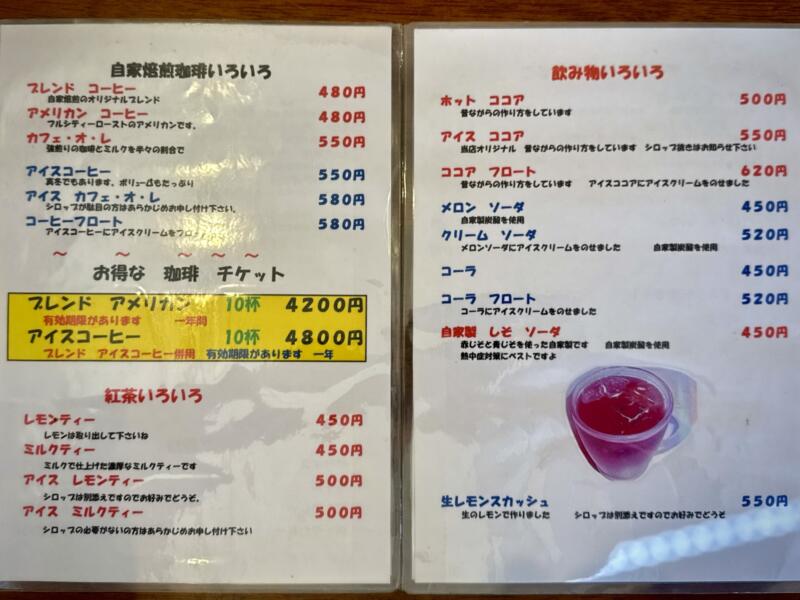 自家焙煎珈琲いろいろ
ブレンド コーヒー 480円
自家焙煎のオリジナルブレンド
アメリカン コーヒー 480円
フルシティーローストのアメリカンです。
カフェ・オ・レ 550円
強煎りの珈琲とミルクを半々の割合で
アイスコーヒー 550円
真冬でもあります、ボリュームもたっぷり
アイス カフェ・オ・レ 580円
シロップが駄目の方はあらかじめお申し付け下さい。
コーヒーフロート 580円
アイスコーヒーにアイスクリームをフロ
～ ～ ～ ～ ～
お得な 珈琲 チケット
ブレンド アメリカン 10杯 4200円
有効期限があります 一年間
アイスコーヒー 10杯 4800円
ブレンド アイスコーヒー併用 有効期限があります 一年
紅茶いろいろ
レモンティー 450円
レモンは取り出して下さいね
ミルクティー 450円
ミルクで仕上げた濃厚なミルクティーです
アイス レモンティー 500円
シロップは別添えですのでお好みでどうぞ。
アイス ミルクティー 500円
シロップの必要がないの方はあらかじめお申し付け下さい
飲み物いろいろ
ホット ココア 500円
昔ながらの作り方をしています
アイス ココア 550円
当店オリジナル 昔ながらの作り方をしています シロップ抜きはお知らせ下さい
ココア フロート 620円
昔ながらの作り方をしています アイスココアにアイスクリームをのせました
メロン ソーダ 450円
自家製炭酸を使用
クリーム ソーダ 520円
メロンソーダにアイスクリームをのせました 自家製炭酸を使用
コーラ 450円
コーラ フロート 520円
コーラにアイスクリームをのせました
自家製 しそ ソーダ 450円
赤じそと青じそを使った自家製です 自家製炭酸を使用
熱中症対策にベストですよ
生レモンスカッシュ 550円
生のレモンで作りました シロップは別添えですのでお好みでどうぞ